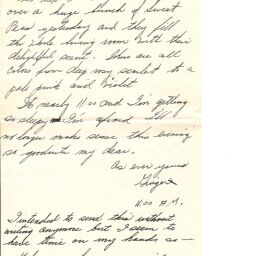 over a huge bunch of Sweet
Peas yesterday and they fill
the whole living room with their
delightful scent. There are all
colors from deep rosy scarlet to a
pale pink and Violet
It nearly 11:00 and I'm getting
so sleepy I'm afraid I'll
no longer make sense this evening
so goodnite my dear.
As ever yours
Ginger
11:00 P.M.
I intended to send this without
writing anymore but I seem to
have time on my hands so —